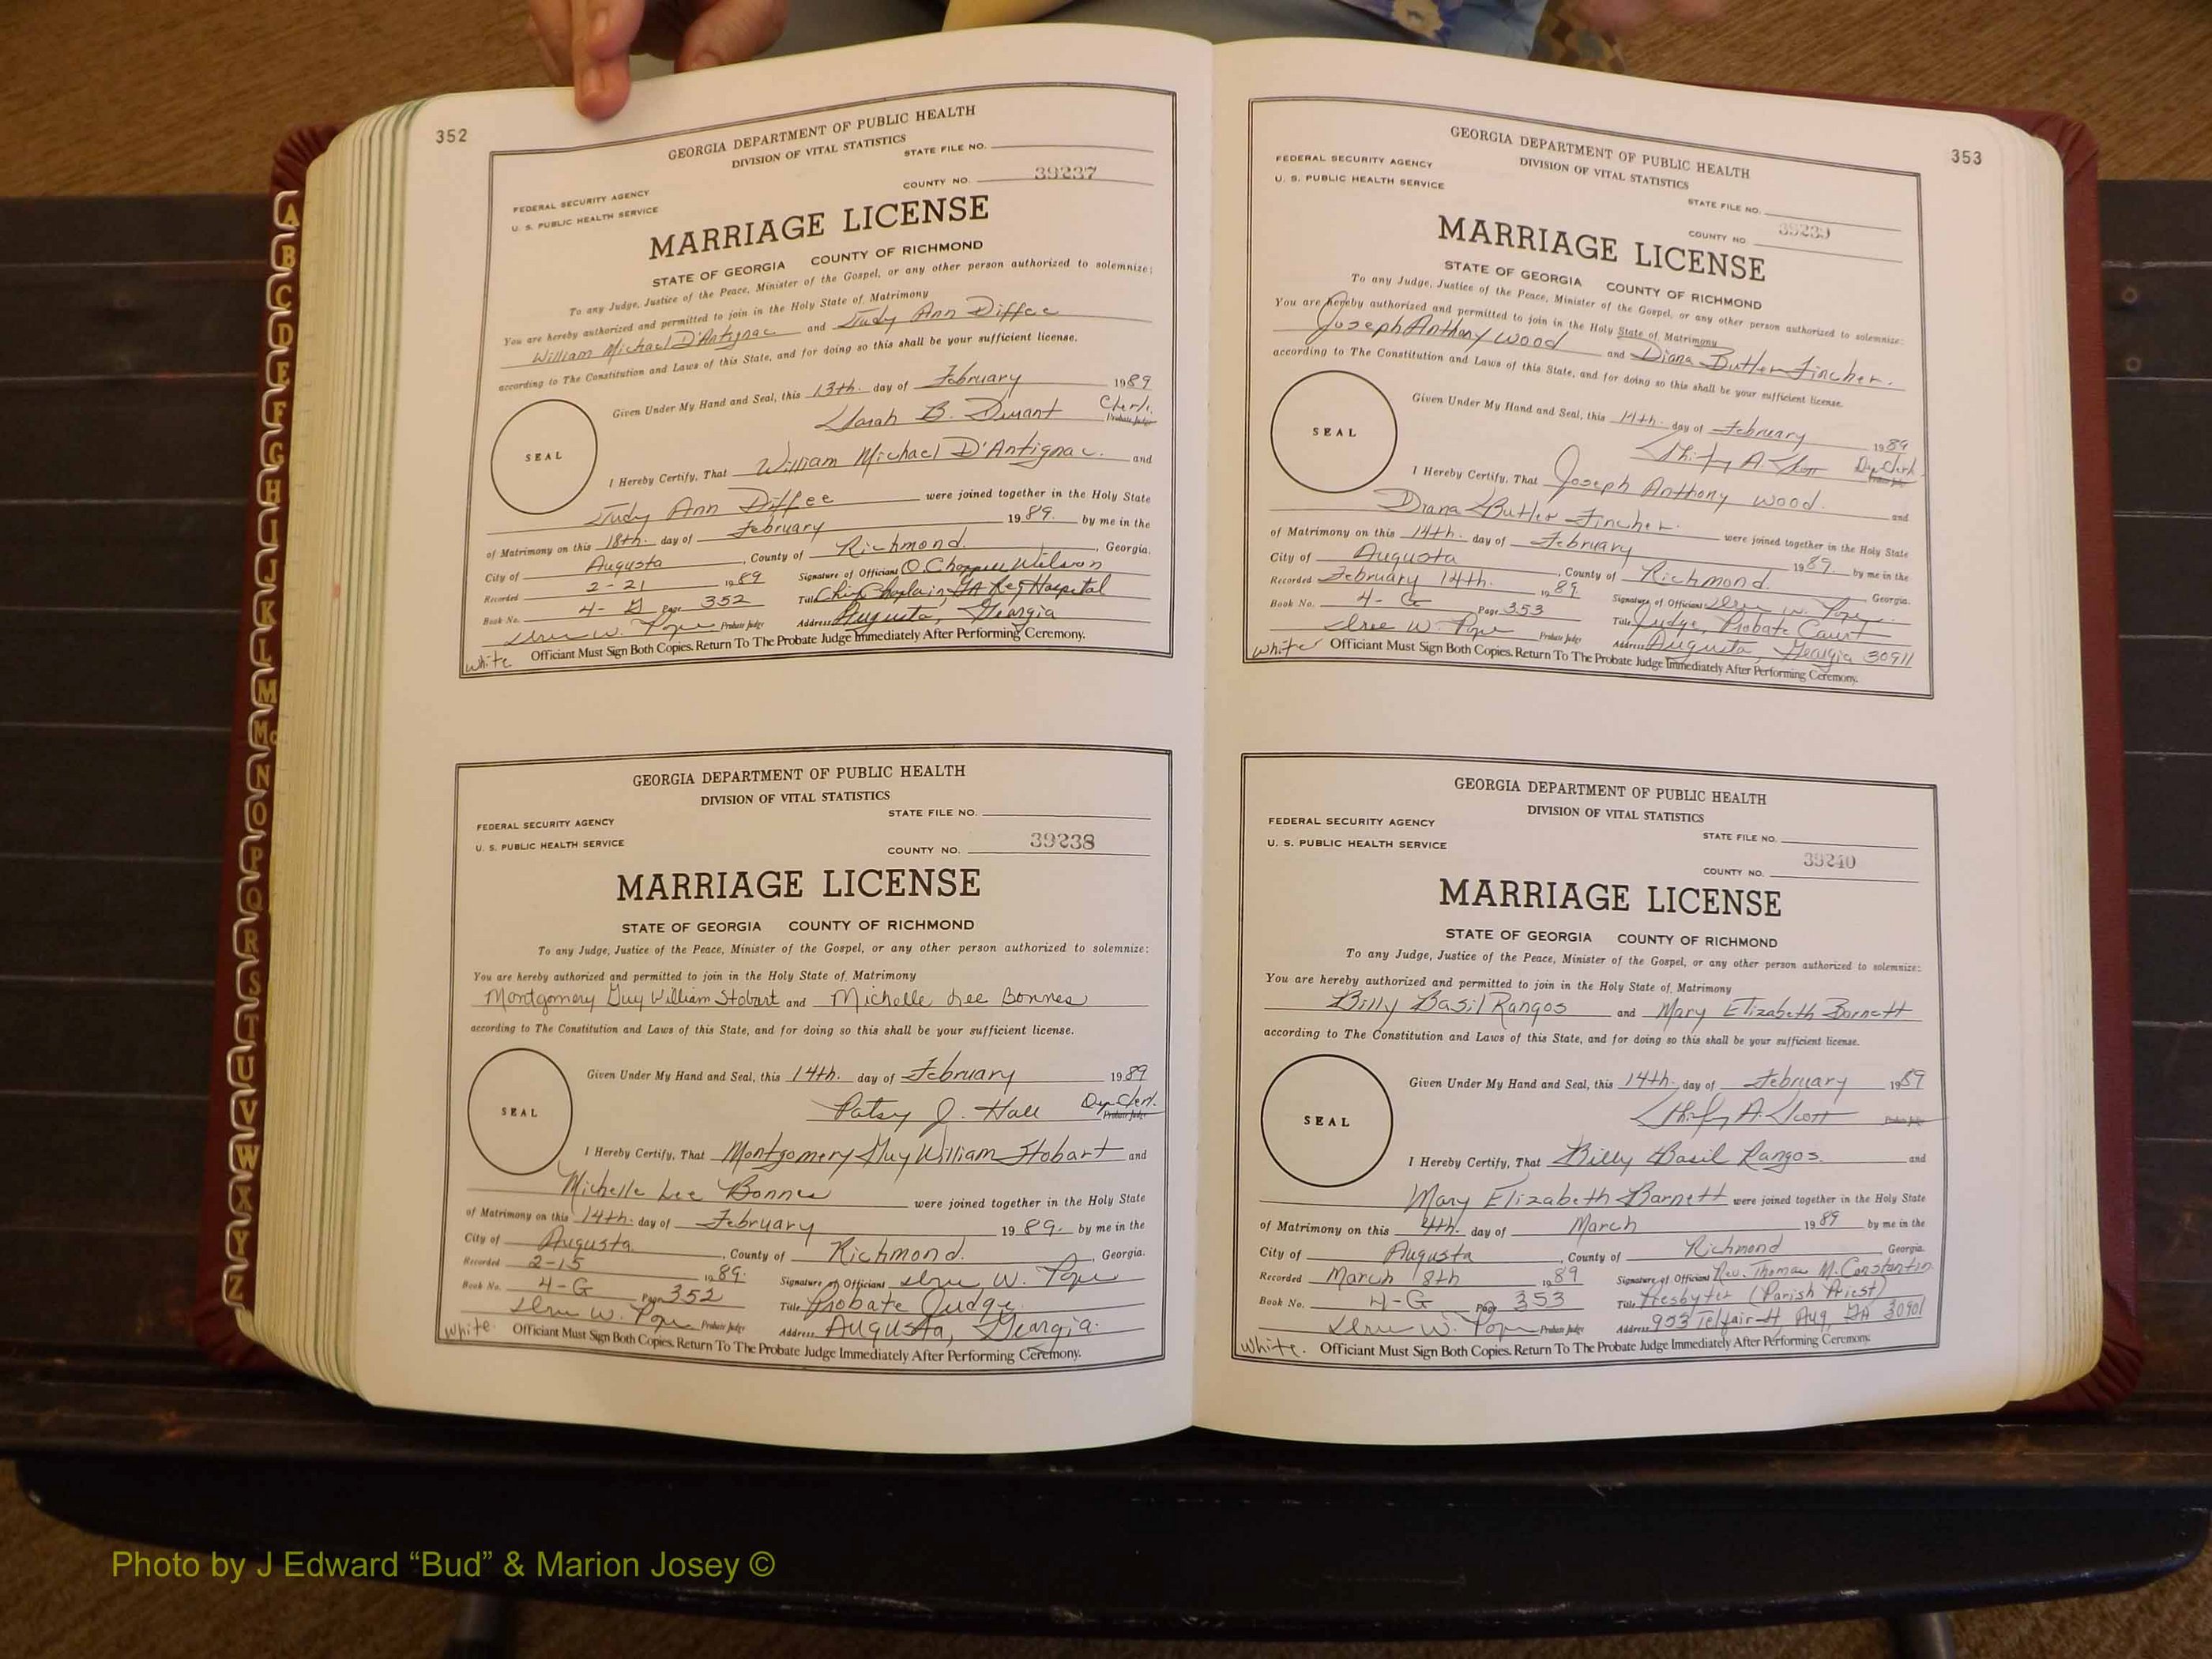 352
GEORGIA DEPARTMENT OF PUBLIC HEALTH
DIVISION OF VITAL STATISTICS
STATE FILE NO.
FEDERAL SECURITY AGENCY
U. S. PUBLIC HEALTH SERVICE
COUNTY NO. 39237
MARRIAGE LICENSE
STATE OF GEORGIA COUNTY OF RICHMOND
To any Judge, Justice of the Peace, Minister of the Gospel, or any other person authorized to solemnize:
You are hereby authorized and permitted to join in the Holy State of Matrimony
William Michael D'Antignac and Judy Ann Diffee
according to The Constitution and Laws of this State, and for doing so this shall be your sufficient license.
Given Under My Hand and Seal, this 13th. day of February 1989
Sarah B. Durant Clerk. Probate Judge
SEAL
I Hereby Certify, That William Michael D'Antignac. and
Judy Ann Diffee were joined together in the Holy State
of Matrimony on this 18th. day of February 1989. by me in the
City of Augusta, County of Richmond., Georgia.
Recorded 2-21 1989 Signature of Officiant O. Wilson
Book No. 4-G Page 352 Title Chief Chaplain, GA Reg Hospital
Probate Judge Address Augusta, Georgia
white Officiant Must Sign Both Copies. Return To The Probate Judge Immediately After Performing Ceremony.
GEORGIA DEPARTMENT OF PUBLIC HEALTH
DIVISION OF VITAL STATISTICS
STATE FILE NO.
FEDERAL SECURITY AGENCY
U. S. PUBLIC HEALTH SERVICE
COUNTY NO. 39238
MARRIAGE LICENSE
STATE OF GEORGIA COUNTY OF RICHMOND
To any Judge, Justice of the Peace, Minister of the Gospel, or any other person authorized to solemnize:
You are hereby authorized and permitted to join in the Holy State of Matrimony
Montgomery Guy William Stobart and Michelle Lee Bonnes
according to The Constitution and Laws of this State, and for doing so this shall be your sufficient license.
Given Under My Hand and Seal, this 14th. day of February 1989
Patsy J. Hall Dep Clerk. Probate Judge
SEAL
I Hereby Certify, That Montgomery Guy William Stobart and
Michelle Lee Bonnes were joined together in the Holy State
of Matrimony on this 14th. day of February 1989. by me in the
City of Augusta., County of Richmond., Georgia.
Recorded 2-15 1989. Signature of Officiant W. Pope
Book No. 4-G Page 352 Title Probate Judge
W. Pope Probate Judge Address Augusta, Georgia.
White. Officiant Must Sign Both Copies. Return To The Probate Judge Immediately After Performing Ceremony.
353
GEORGIA DEPARTMENT OF PUBLIC HEALTH
DIVISION OF VITAL STATISTICS
FEDERAL SECURITY AGENCY
U. S. PUBLIC HEALTH SERVICE
STATE FILE NO.
COUNTY NO 39239
MARRIAGE LICENSE
STATE OF GEORGIA COUNTY OF RICHMOND
To any Judge, Justice of the Peace, Minister of the Gospel, or any other person authorized to solemnize:
You are hereby authorized and permitted to join in the Holy State of Matrimony
Joseph Anthony Wood and Diana Butler Fincher.
according to The Constitution and Laws of this State, and for doing so this shall be your sufficient license.
Given Under My Hand and Seal, this 14th. day of February 1989
A. Scott Dep Clerk Probate Judge
SEAL
I Hereby Certify, That Joseph Anthony Wood. and
Diana Butler Fincher. were joined together in the Holy State
of Matrimony on this 14th. day of February 1989. by me in the
City of Augusta, County of Richmond. Georgia.
Recorded February 14th. 1989. Signature of Officiant W. Pope
Book No. 4-G Page 353 Title Judge, Probate Court
W. Pope Probate Judge Address Augusta, Georgia 30911
White Officiant Must Sign Both Copies. Return To The Probate Judge Immediately After Performing Ceremony.
GEORGIA DEPARTMENT OF PUBLIC HEALTH
DIVISION OF VITAL STATISTICS
FEDERAL SECURITY AGENCY
U. S. PUBLIC HEALTH SERVICE
STATE FILE NO.
COUNTY NO. 39240
MARRIAGE LICENSE
STATE OF GEORGIA COUNTY OF RICHMOND
To any Judge, Justice of the Peace, Minister of the Gospel, or any other person authorized to solemnize:
You are hereby authorized and permitted to join in the Holy State of Matrimony
Billy Basil Rangos and Mary Elizabeth Barnett
according to The Constitution and Laws of this State, and for doing so this shall be your sufficient license.
Given Under My Hand and Seal, this 14th. day of February 1989
A. Scott Probate Judge
SEAL
I Hereby Certify, That Billy Basil Rangos. and
Mary Elizabeth Barnett were joined together in the Holy State
of Matrimony on this 4th. day of March 1989 by me in the
City of Augusta, County of Richmond Georgia.
Recorded March 8th 1989 Signature of Officiant Rev. Thomas M. Constantin
Book No. 4-G Page 353 Title Presbyter (Parish Priest)
W. Pope Probate Judge Address 953 Telfair St, Aug, GA 30901
White. Officiant Must Sign Both Copies. Return To The Probate Judge Immediately After Performing Ceremony.
A
B
C
D
E
F
G
H
I
J
K
L
M
Mc
N
O
P
Q
R
S
T
U
V
W
X
Y
Z
Photo by J Edward “Bud” & Marion Josey ©